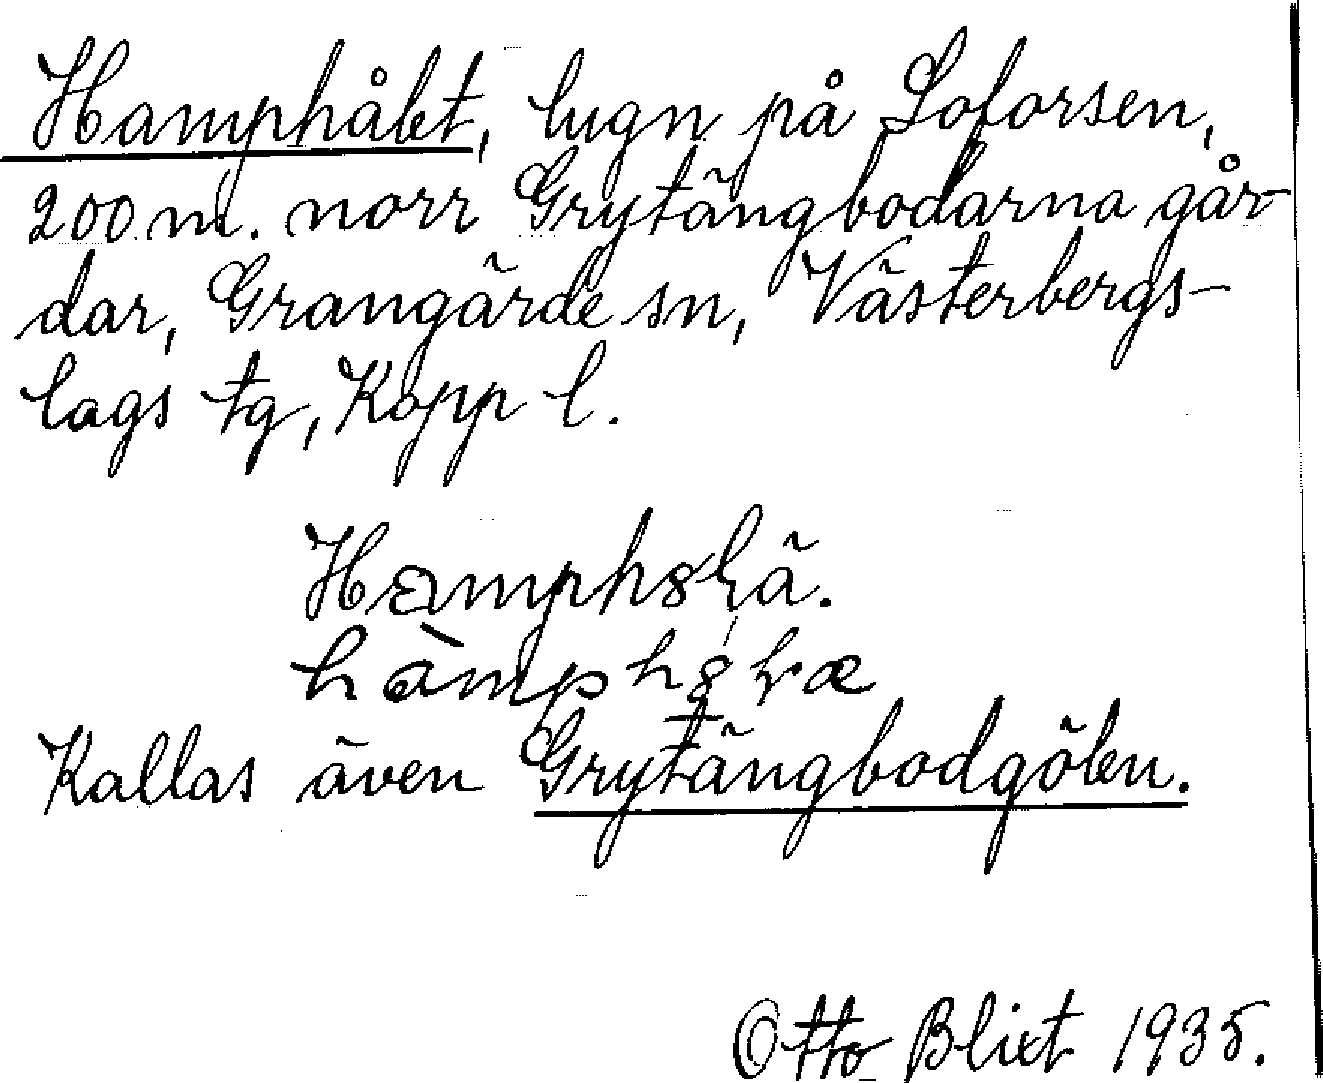 Hamphålet, lugn på Loforsen,
200 m. norr Grytängbodarna går-
dar, Grangärde sn, Västerbergs-
lags tg, Kopp l.
Kallas även Grytängbodgölen.
Otto Blixt 1935.